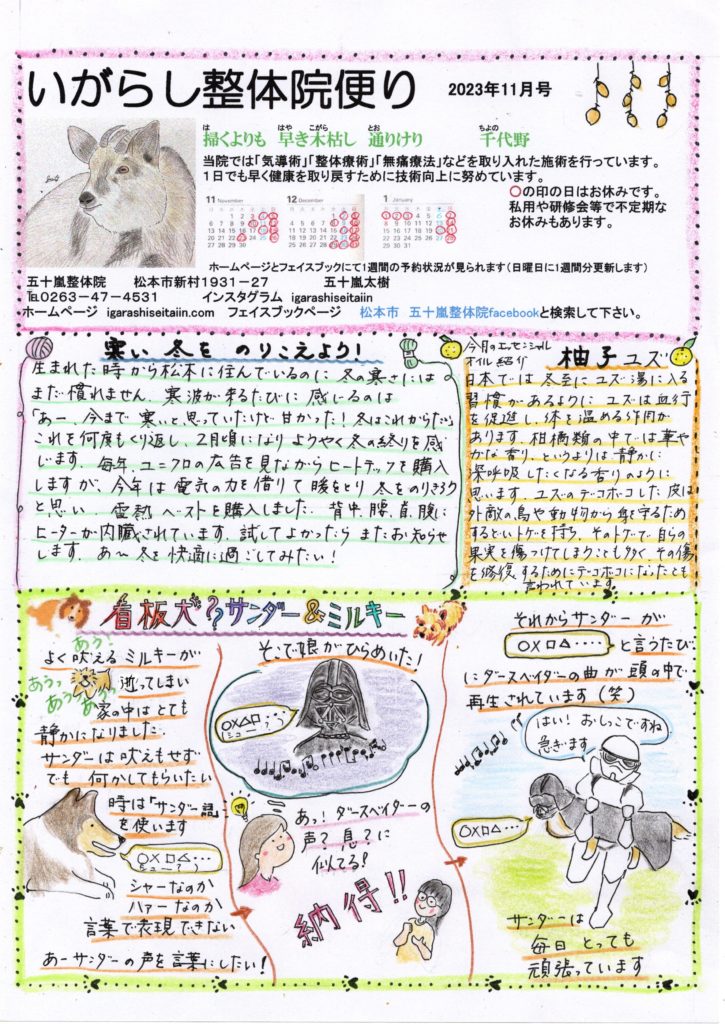 いがらし整体院便り
2023年11月号
掃くよりも 早き木枯し 通りけり 千代野
当院では「気導術」「整体療術」「無痛療法」などを取り入れた施術を行っています。
1日でも早く健康を取り戻すために技術向上に努めています。
○の印の日はお休みです。
私用や研修会等で不定期な
お休みもあります。
11 November
12 December
1 January
ホームページとフェイスブックにて1週間の予約状況が見られます(日曜日に1週間分更新します)
五十嵐整体院 松本市新村1931-27 五十嵐太樹
℡0263-47-4531 インスタグラム igarashiseitaiin
ホームページ igarashiseitaiin.com フェイスブックページ 松本市 五十嵐整体院facebookと検索して下さい。
寒い 冬を のりこえよう!
生まれた時から松本に住んでいるのに 冬の寒さには
まだ慣れません。寒波が来るたびに 感じるのは
「あー、今まで 寒いと思っていたけど 甘かった!冬はこれからだ」
これを何度もくり返し、2月頃になり ようやく冬の終りを感
じます。毎年、ユニクロの広告を見ながらヒートテックを購入
しますが、今年は 電気の力を借りて 暖をとり 冬をのりきろう
と思い、電熱ベストを購入しました。背中、腰、肩、腹に
ヒーターが内臓されています。試してよかったら またお知らせ
します。あ〜 冬を快適に過ごしてみたい!
今月のエッセンシャル
オイル紹介
柚子 ユズ
日本では 冬至に ユズ湯に入る
習慣があるように ユズは血行
を促進し、体を温める作用が
あります。柑橘類の中では華や
かな香り、というよりは 静かに
深呼吸したくなる香りのように
思います。ユズのデコボコした皮は
外敵の鳥や動物から身を守るため
するどいトゲを持ち、そのトゲで自らの
果実を傷つけてしまうことも多く、その傷
を修復するためにデコボコになったとも
言われています。
看板犬?サンダー&ミルキー
よく吠える ミルキーが
あう!
あうっ
あうっ
あうっ
逝ってしまい
家の中は とても
静かになりました
サンダーは 吠えもせず
でも 何かしてもらいたい
時は「サンダー語」
を使います
○×□△…
シャーなのか
ハァーなのか
言葉で表現できない
あーサンダーの声を言葉にしたい!
そこで娘がひらめいた!
○×△□
あっ!ダースベイダーの
声?息?に
似てる!
納得!!
それからサンダーが
○×□△…… と言うたび
にダースベイダーの曲が 頭の中で
再生されています(笑)
はい! おしっこですね
急ぎます
○×□△…
サンダーは
毎日 とっても
頑張っています